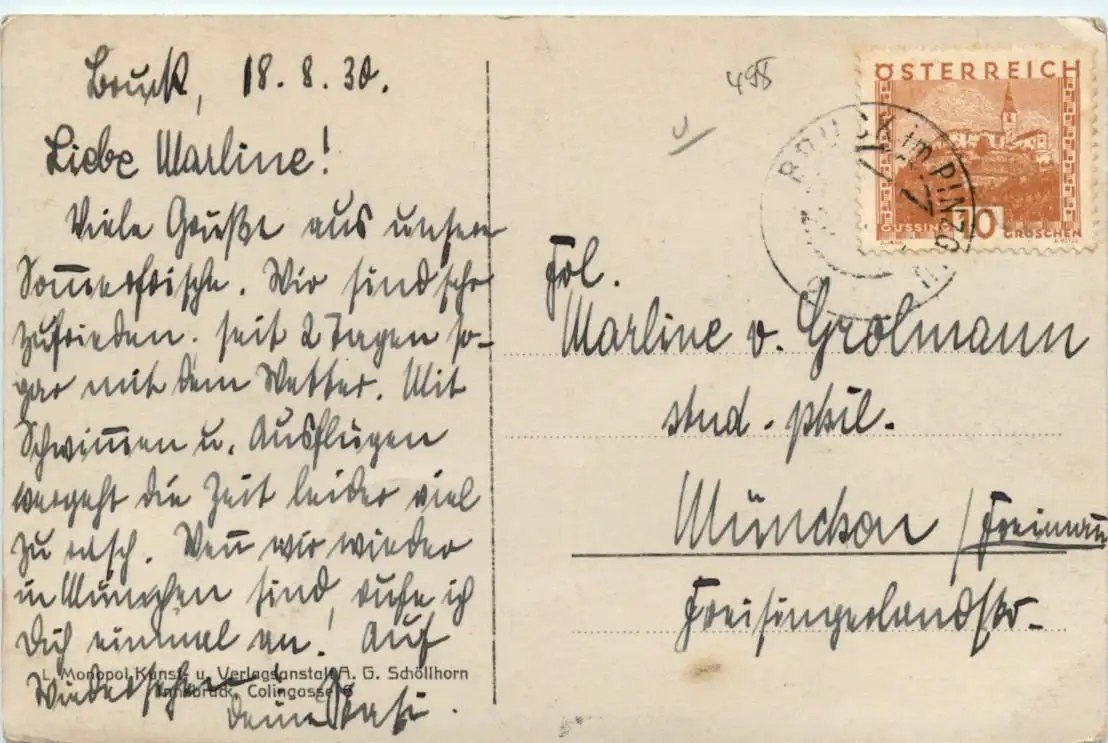 Bruck, 18. 8. 30.
Liebe Marline!
Viele Grüße aus unserer
Sommerfrische. Wir sind sehr
zufrieden. seit 2 Tagen so-
gar mit dem Wetter. Mit
Schwim̅en u. Ausflügen
vergeht die Zeit leider viel
zu rasch. Wen̅ wir wieder
in München sind, rufe ich
Dich einmal an! Auf
Wiedersehen!
Deine
L. Monopol Kunst- u. Verlagsanstalt A. G. Schöllhorn
Innsbruck, Colingasse
498
ÖSTERREICH
GÜSSING 10 GROSCHEN
BRUCK im PINZGAU
Frl.
Marline v. Grolmann
stud. phil.
München / Freimann
Freisingerlandstr.